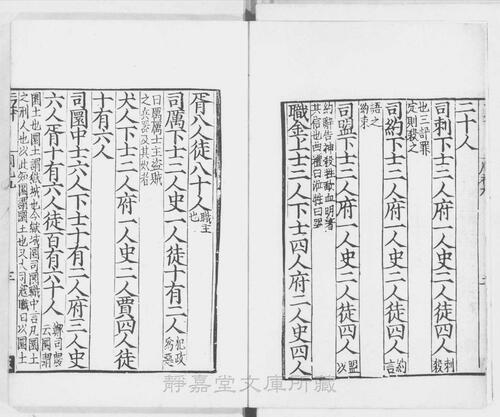 二十人
司刺下士二人府一人史二人徒四人刺殺
也三訊罪
定則殺之
司約下士二人府一人史二人徒四人約言
語之
約束
司盟下士二人府一人史二人徒四人盟以
約辭告神殺牲歃血明著
其信也
職金上士二人下士四人府二人史四人
胥八人徒八十人職主也
司厲下士二人史一人徒十有二人犯政為惡
曰厲厲士主盜賊
之兵器及其奴者
犬人下士二人府一人史二人賈四人徒
十有六人
司圜中士六人下士十有二人府三人史
六人胥十有六人徒百有六十人鄭司農云圜謂
圜土也圜土謂獄城也今獄城圜司圜職中言凡圜土
之刑人也以此知圜謂圜土也又大司寇職曰以圜土
静嘉堂文庫所蔵